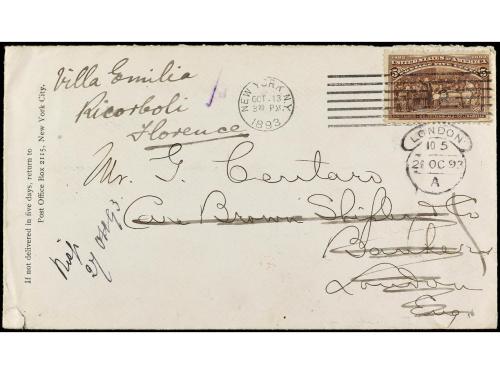 Villa Emilia
Ricorboli
Florence
NEW YORK, N.Y.
OCT 13
1893
UNITED STATES OF AMERICA
LONDON
10 5
OC 93
A
Mr. G. Cantaro
Care Brown Shipley & Co
Bankers
London
Eng.
Risp
27 Ott 93
If not delivered in five days, return to
Post Office Box 2115, New York City.